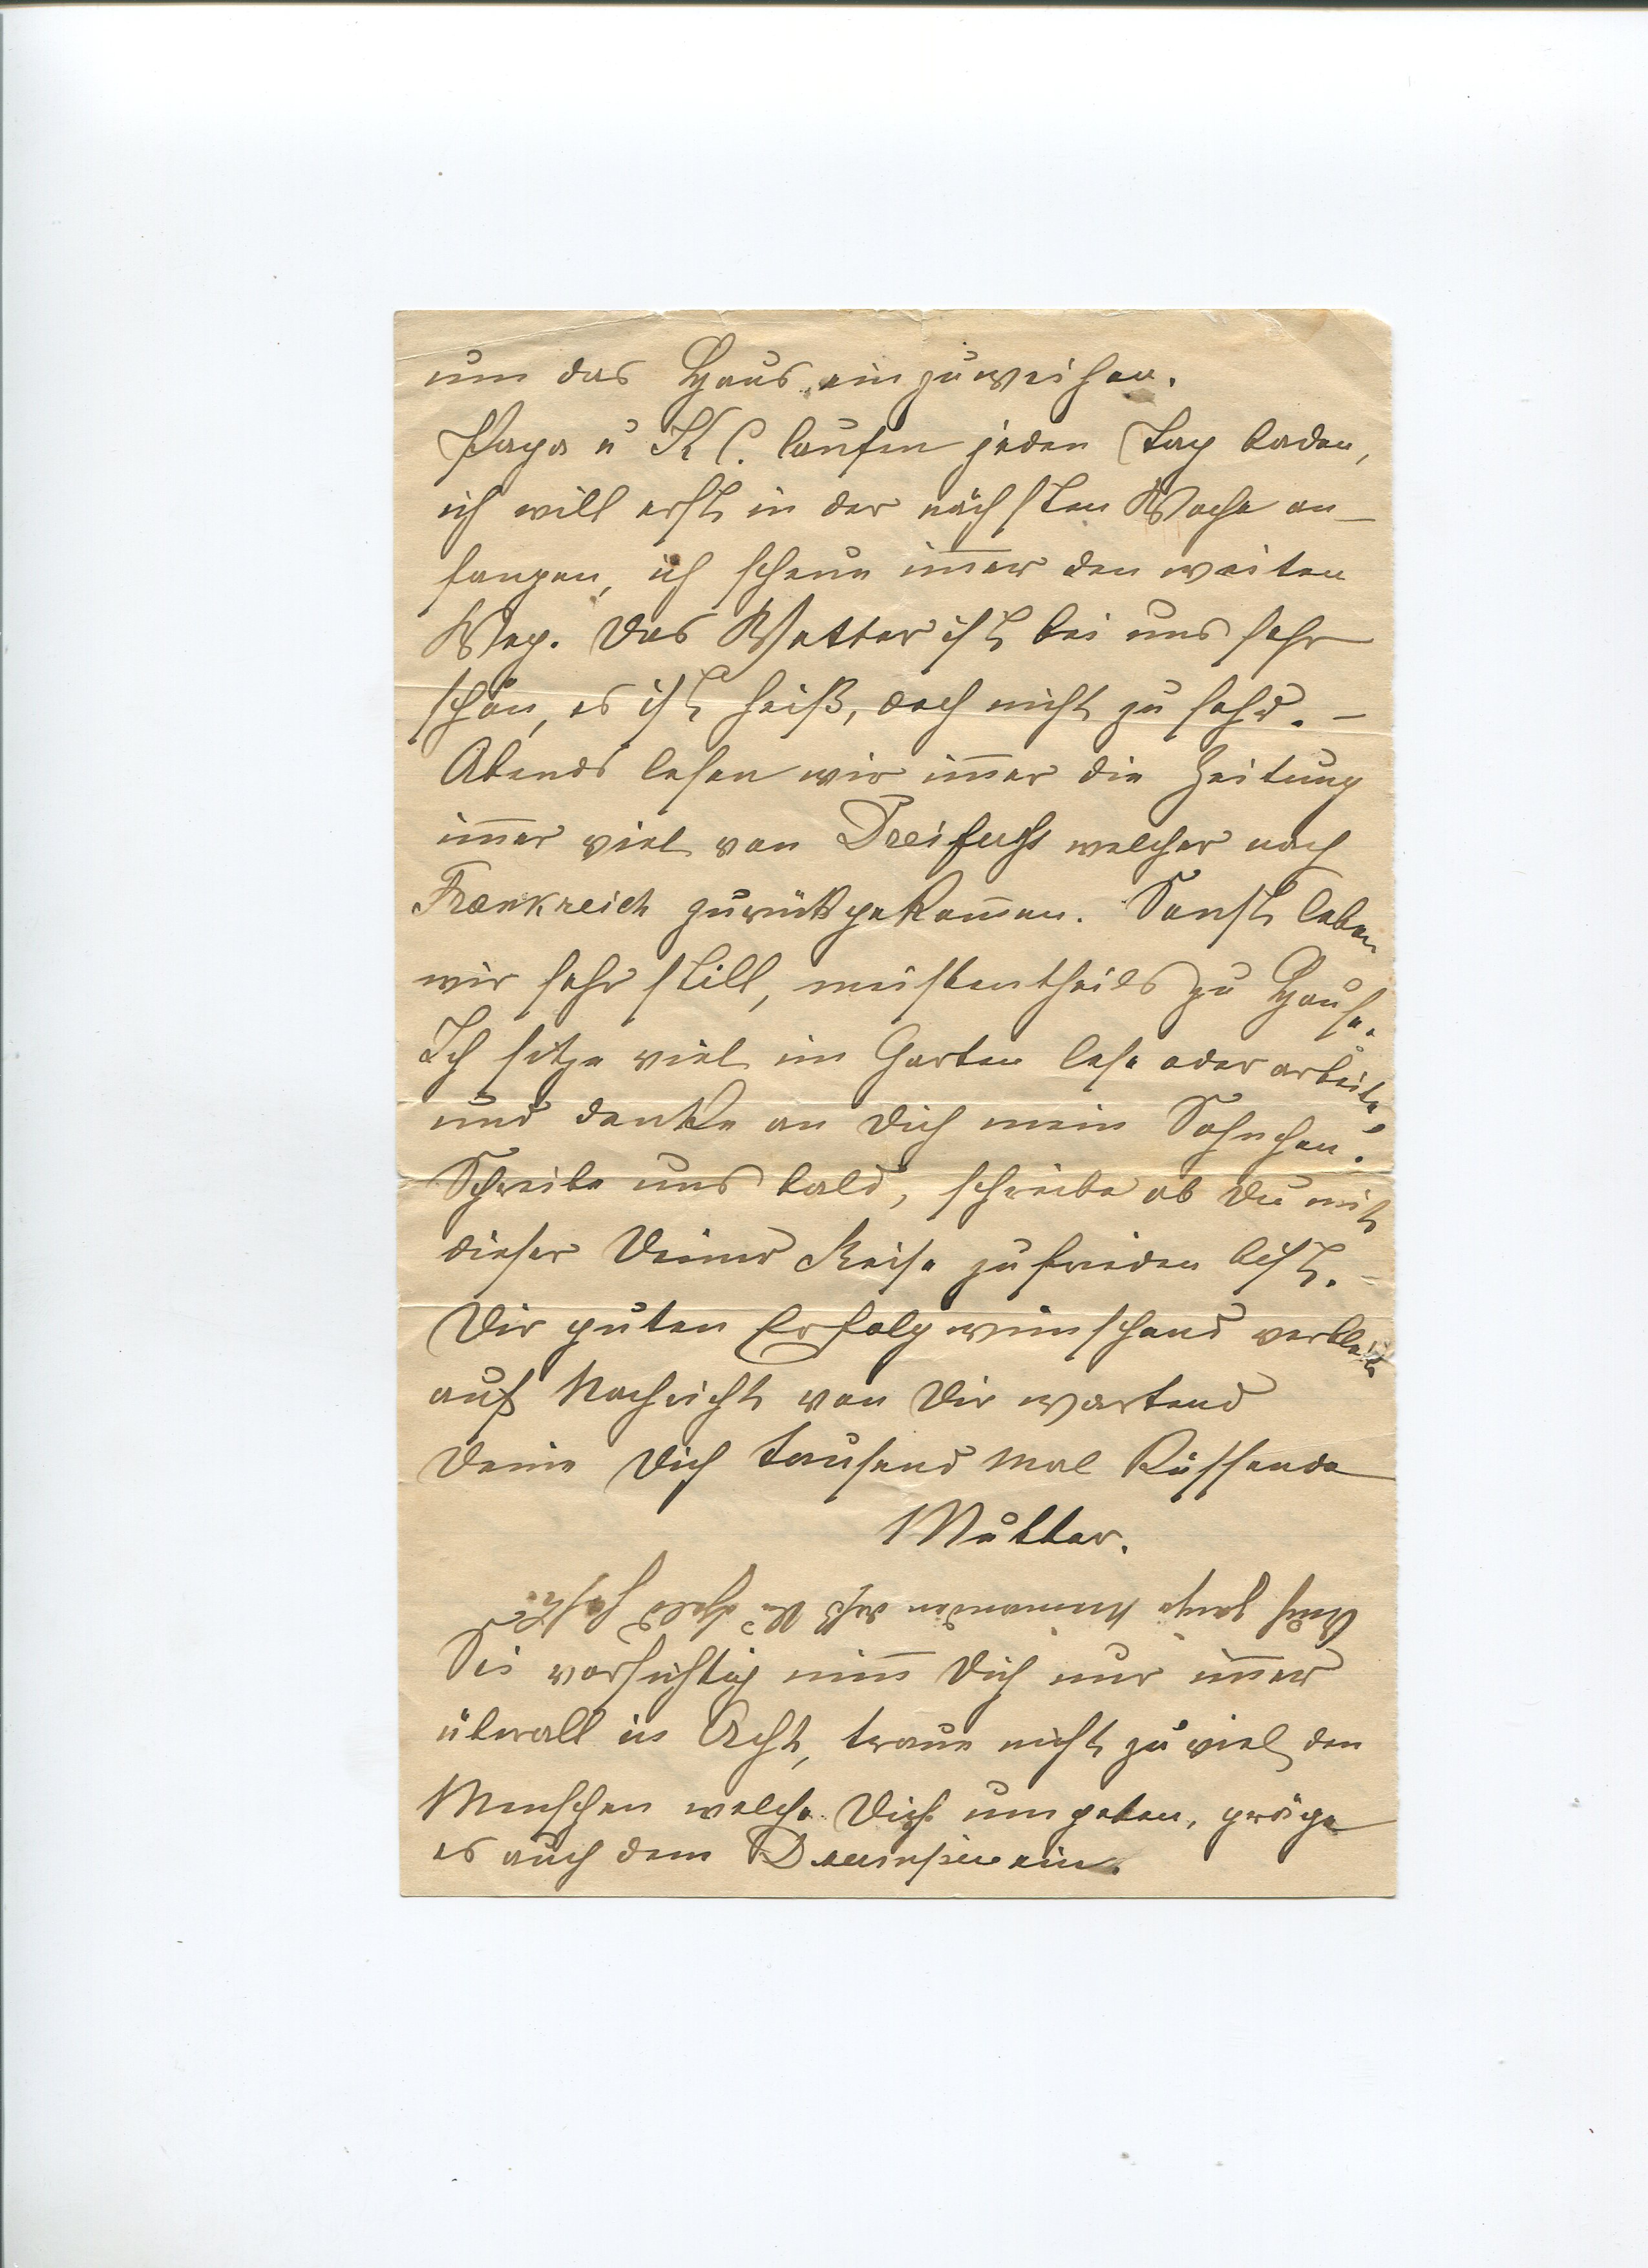 um das Haus einzuweihen.
Papa u K C. laufen jeden Tag baden,
ich will erst in der nächsten Woche an-
fangen, ich scheue im̅er den weiten
Weg. Das Wetter ist bei uns sehr
schön, es ist heiß, doch nicht zu sehr. –
Abends lesen wir im̅er die Zeitung
im̅er viel von Dreifuhs welcher nach
Frankreich zurückgekom̅en. Sonst leben
wir sehr still, meistentheils zu Hause.
Ich sitze viel im Garten lese oder arbeite
und denke an Dich mein Sohnchen.
Schreibe uns bald, schreibe ob Du mit
dieser Deiner Reise zufrieden bist.
Dir guten Erfolg wünschend verbleibe
auf Nachricht von Dir wartend
Deine Dich tausend Mal Küssende
Mutter.
Sei vorsichtig nim̅ Dich nur im̅er
überall in Acht, traue nicht zu viel den
Menschen welche Dich umgeben, präge
es auch dem ein.